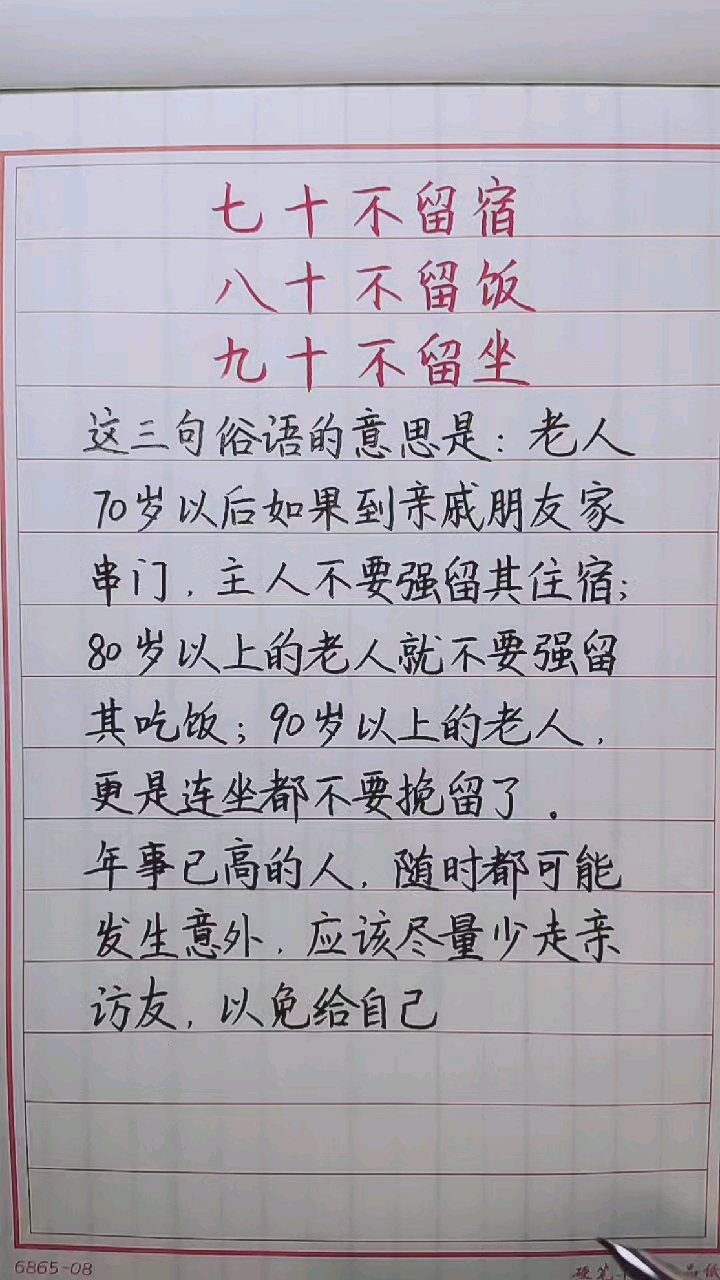 七十不留宿
八十不留饭
九十不留坐
这三句俗语的意思是：老人
70岁以后如果到亲戚朋友家
串门，主人不要强留其住宿；
80岁以上的老人就不要强留
其吃饭；90岁以上的老人，
更是连坐都不要挽留了。
年事已高的人，随时都可能
发生意外，应该尽量少走亲
访友，以免给自己
6865-08
硬笔